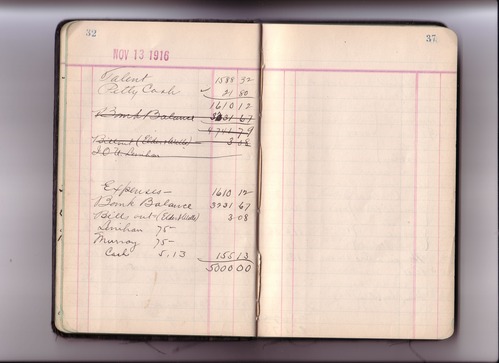 32
NOV 13 1916
Talent 1588 32
Petty Cash 21 80
1610 12
Bank Balance 3231 67
4741 79
Bills out (Elder & Wells) 3.08
I.O.U. Lenihan
Expenses — 1610 12
Bank Balance 3231 67
Bills out (Elder & Wells) 3.08
Lenihan 75-
Murray 75-
Cash 5.13 155 13
5000 00
37